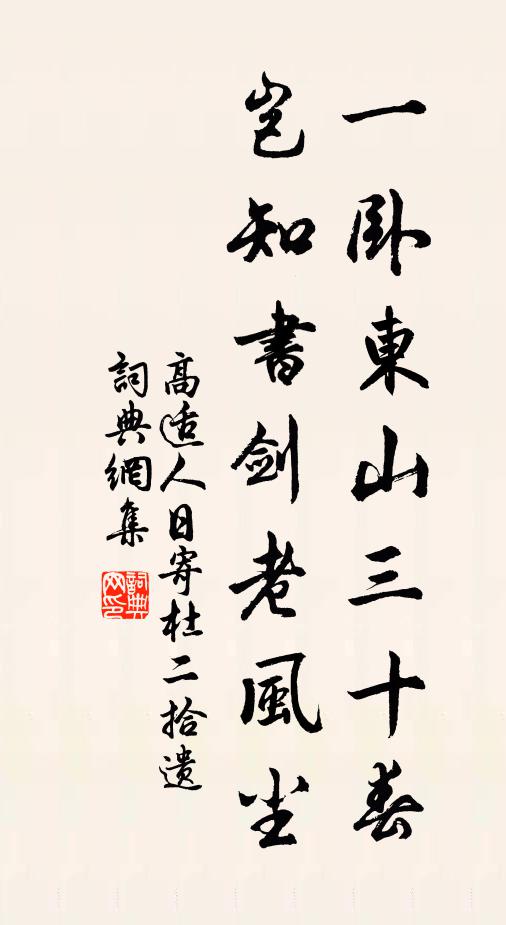 一卧東山三十春
豈知書劍老風尘
高适人日寄杜二拾遗
詞典網集
詞典網印